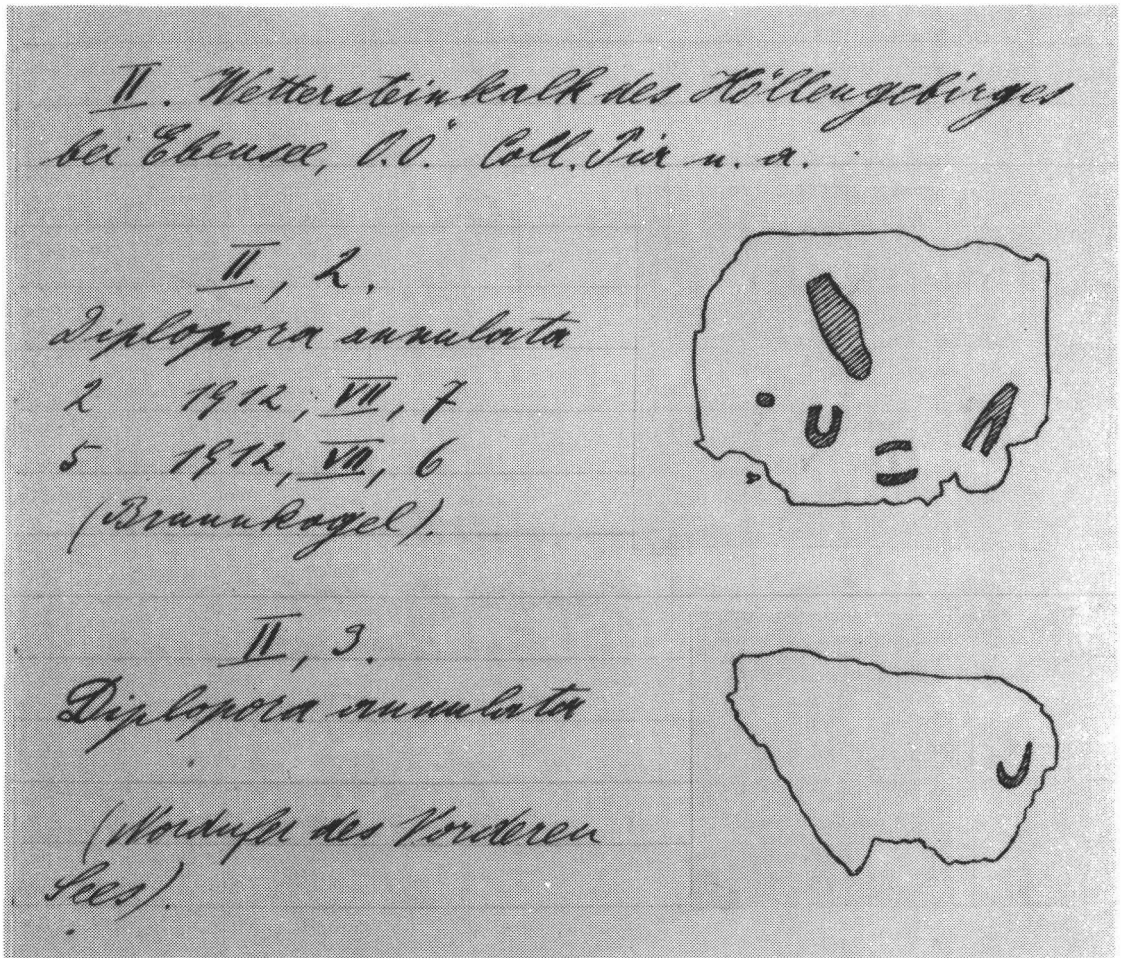 II. Wettersteinkalk des Höllengebirges
bei Ebensee, O.Ö. Coll. Pia u. a.
II, 2.
Diplopora annulata
2 1912, VII, 7
5 1912, VII, 6
(Brunnkogel).
II, 3.
Diplopora annulata
(Nordufer des Vorderen
Sees).